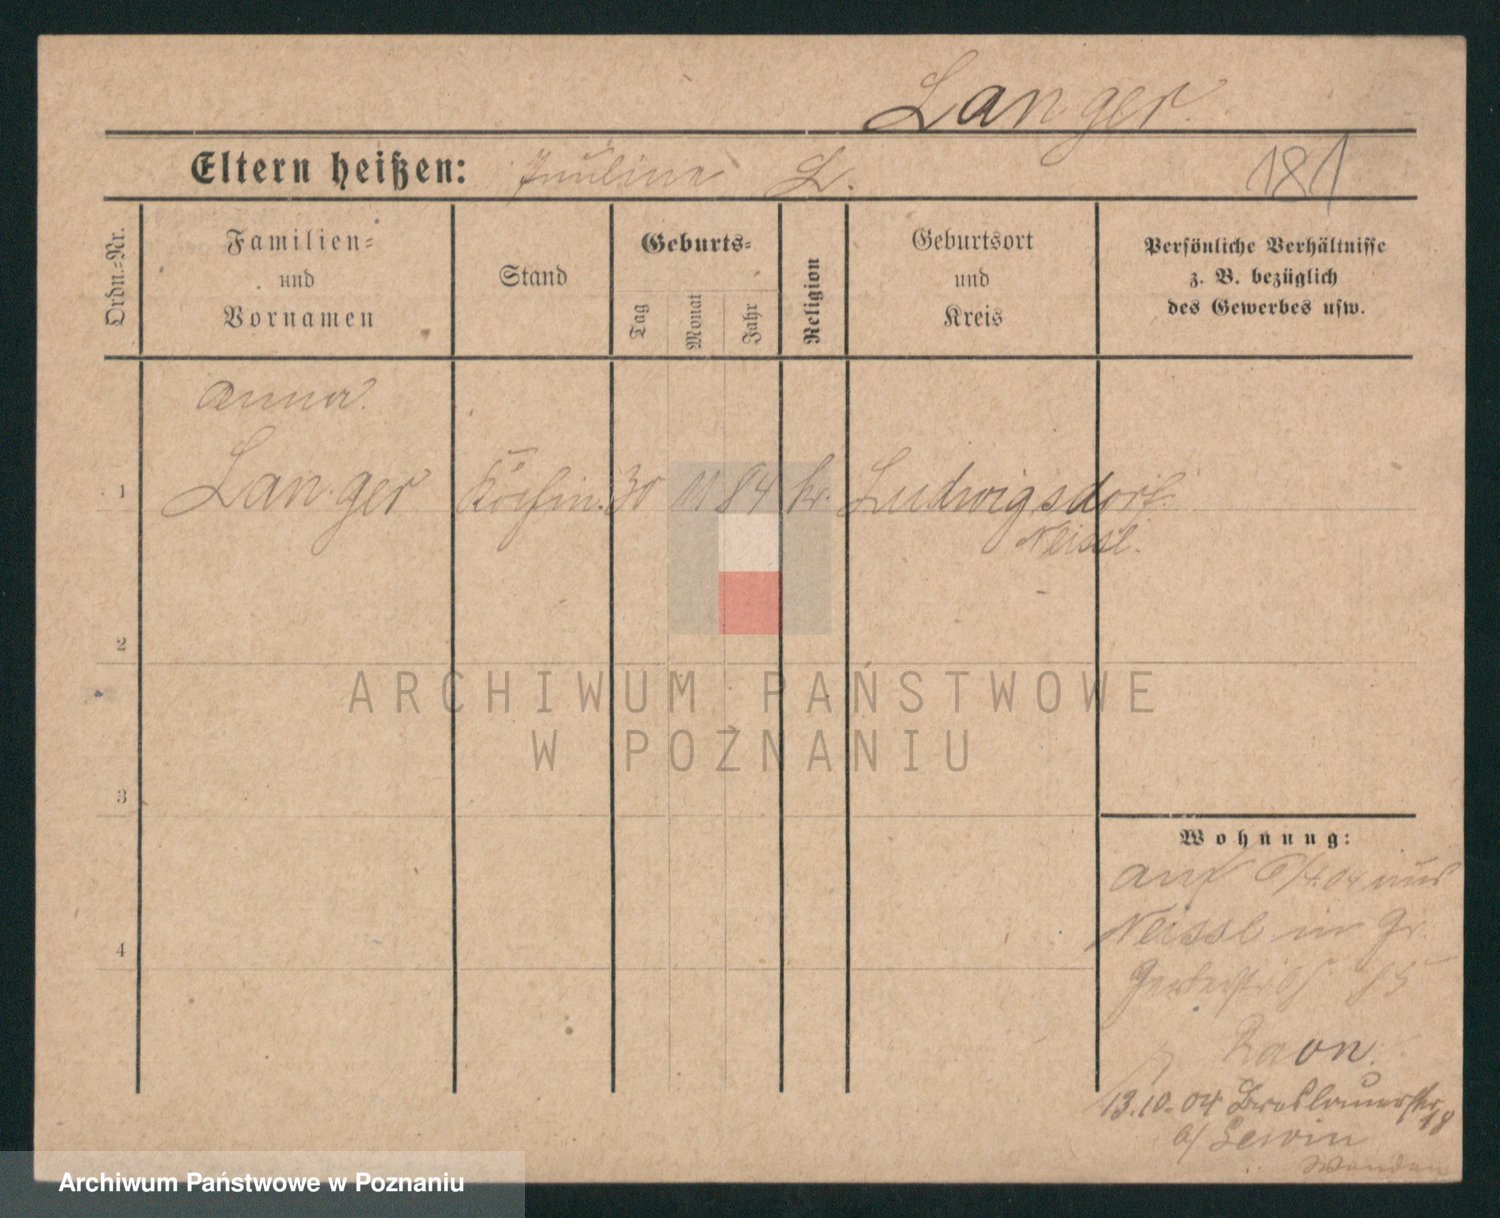 Langer
Eltern heißen: Pauline L.
181
Ordn.-Nr.
Familien-
und
Vornamen
Stand
Geburts-
Tag
Monat
Jahr
Religion
Geburtsort
und
Kreis
Persönliche Verhältnisse
z. B. bezüglich
des Gewerbes usw.
Anna
1 Langer Köchin 30 11 84 k. Ludwigsdorf
Neisse.
2
ARCHIWUM PAŃSTWOWE
W POZNANIU
3
4
Wohnung:
aus
Neisse in Gr.
13.10.04 Breslauerstr 18
b/ Lewin
Archiwum Państwowe w Poznaniu